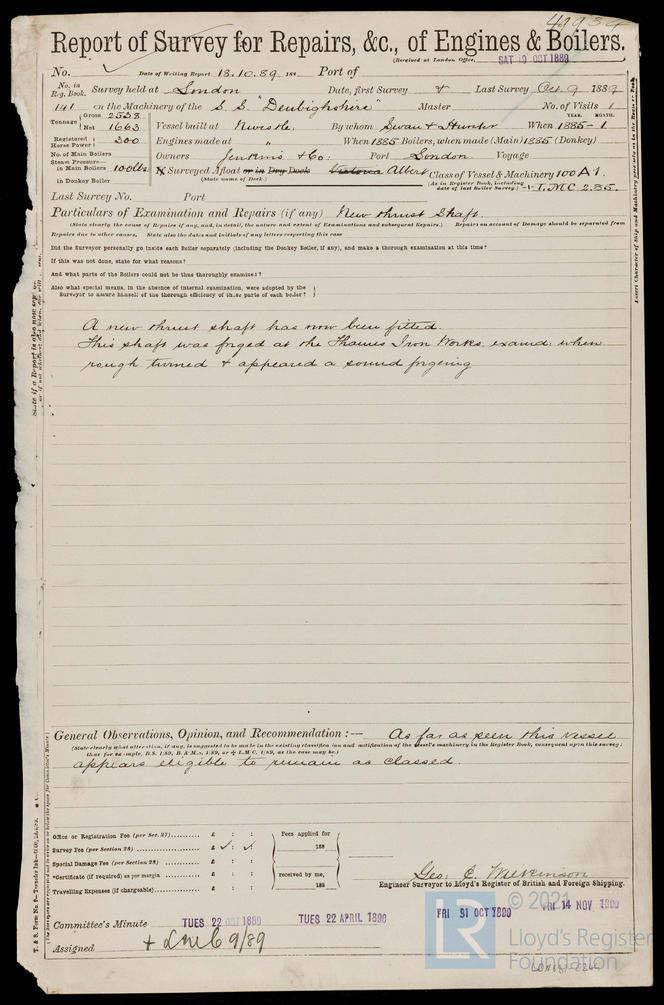 49934
Report of Survey for Repairs, &c., of Engines & Boilers.
(Received at London Office, SAT 19 OCT 1889
No. Date of Writing Report 18.10.89. 188 Port of
No. in Reg. Book. Survey held at London Date, first Survey & Last Survey Oct. 9 1889
141 on the Machinery of the S. S. "Denbighshire" Master No. of Visits 1
Tonnage Gross 2538 Net 1663 Vessel built at Newcstle. By whom Swan & Hunter When 1885-1 YEAR. MONTH.
Registered Horse Power 300 Engines made at " When 1885 Boilers, when made (Main) 1885 (Donkey)
No. of Main Boilers Owners Jenkins & Co: Port London Voyage
Steam Pressure— in Main Boilers 100lbs X Surveyed Afloat or in Dry Dock Victoria Albert Class of Vessel & Machinery 100A1.
in Donkey Boiler (State name of Dock.) (As in Register Book, including date of last Boiler Survey.) LMC 2.85.
Last Survey No. Port
Particulars of Examination and Repairs (if any) New thrust shaft.
(State clearly the cause of Repairs if any, and, in detail, the nature and extent of Examinations and subsequent Repairs.) Repairs on account of Damage should be separated from
Repairs due to other causes. State also the dates and initials of any letters respecting this case
Did the Surveyor personally go inside each Boiler separately (including the Donkey Boiler, if any), and make a thorough examination at this time?
If this was not done, state for what reasons?
And what parts of the Boilers could not be thus thoroughly examined?
Also what special means, in the absence of internal examination, were adopted by the
Surveyor to assure himself of the thorough efficiency of those parts of each boiler?
A new thrust shaft has now been fitted.
This shaft was forged at the Thames Iron Works, examd. when
rough turned & appeared a sound forgeing
General Observations, Opinion, and Recommendation :— As far as seen this vessel
(State clearly what alteration, if any, is suggested to be made in the existing classification and notification of the vessel's machinery in the Register Book, consequent upon this survey;
thus for example, B.S. 1/89, B. & M.S. 1/89, or L.M.C. 1/89, as the case may be.)
appears eligible to remain as classed.
Office or Registration Fee (per Sec. 27) £ : : Fees applied for
Survey Fee (per Section 28) £ : : 188
Special Damage Fee (per Section 28) £ : :
*Certificate (if required) as per margin £ : : received by me,
Travelling Expenses (if chargeable) £ : : 188
Geo: C. Wilkinson
Engineer Surveyor to Lloyd's Register of British and Foreign Shipping.
Committee's Minute TUES 22 OCT 1889 TUES 22 APRIL 1890 FRI 31 OCT 1890 FRI 14 NOV 1890
Assigned + LMC 9/89
© 2021
LR
Lloyd's Register
Foundation